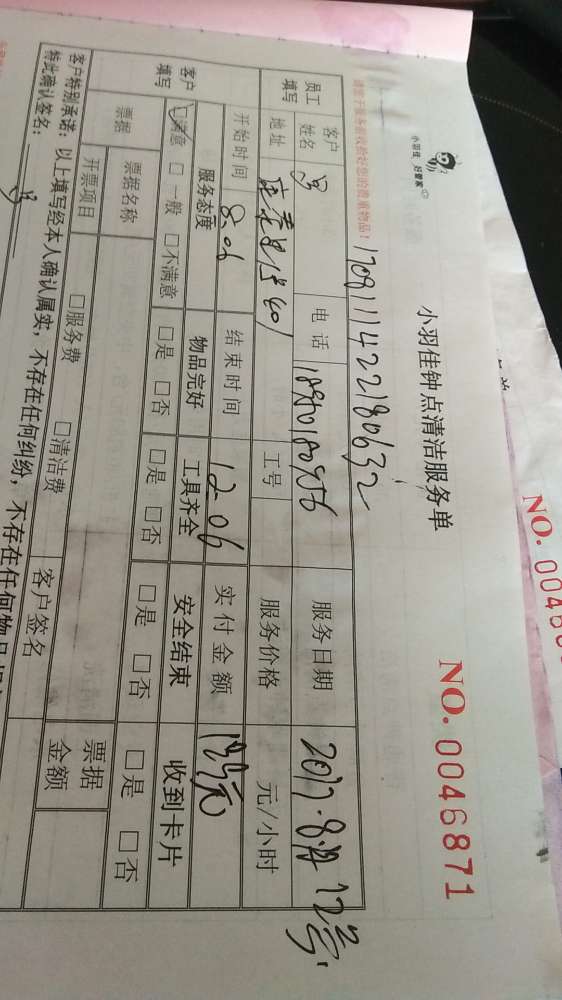 小羽佳 好管家
小羽佳钟点清洁服务单
NO. 0046871
NO. 0046
请您于服务前收捡好您的贵重物品!
1708111422180632
员工填写 客户姓名 电话 服务日期 2017.8月12号
地址 工号 服务价格 元/小时
开始时间 8.06 结束时间 12.06 实付金额
客户填写 服务态度 物品完好 工具齐全 安全结束 收到卡片
☑满意 □一般 □不满意 □是 □否 □是 □否 □是 □否 □是 □否
票据 票据名称 □服务费 □清洁费 票据金额
开票项目
客户特别承诺:以上填写经本人确认属实,不存在任何纠纷,不存在任何物品
特此确认签名: 客户签名